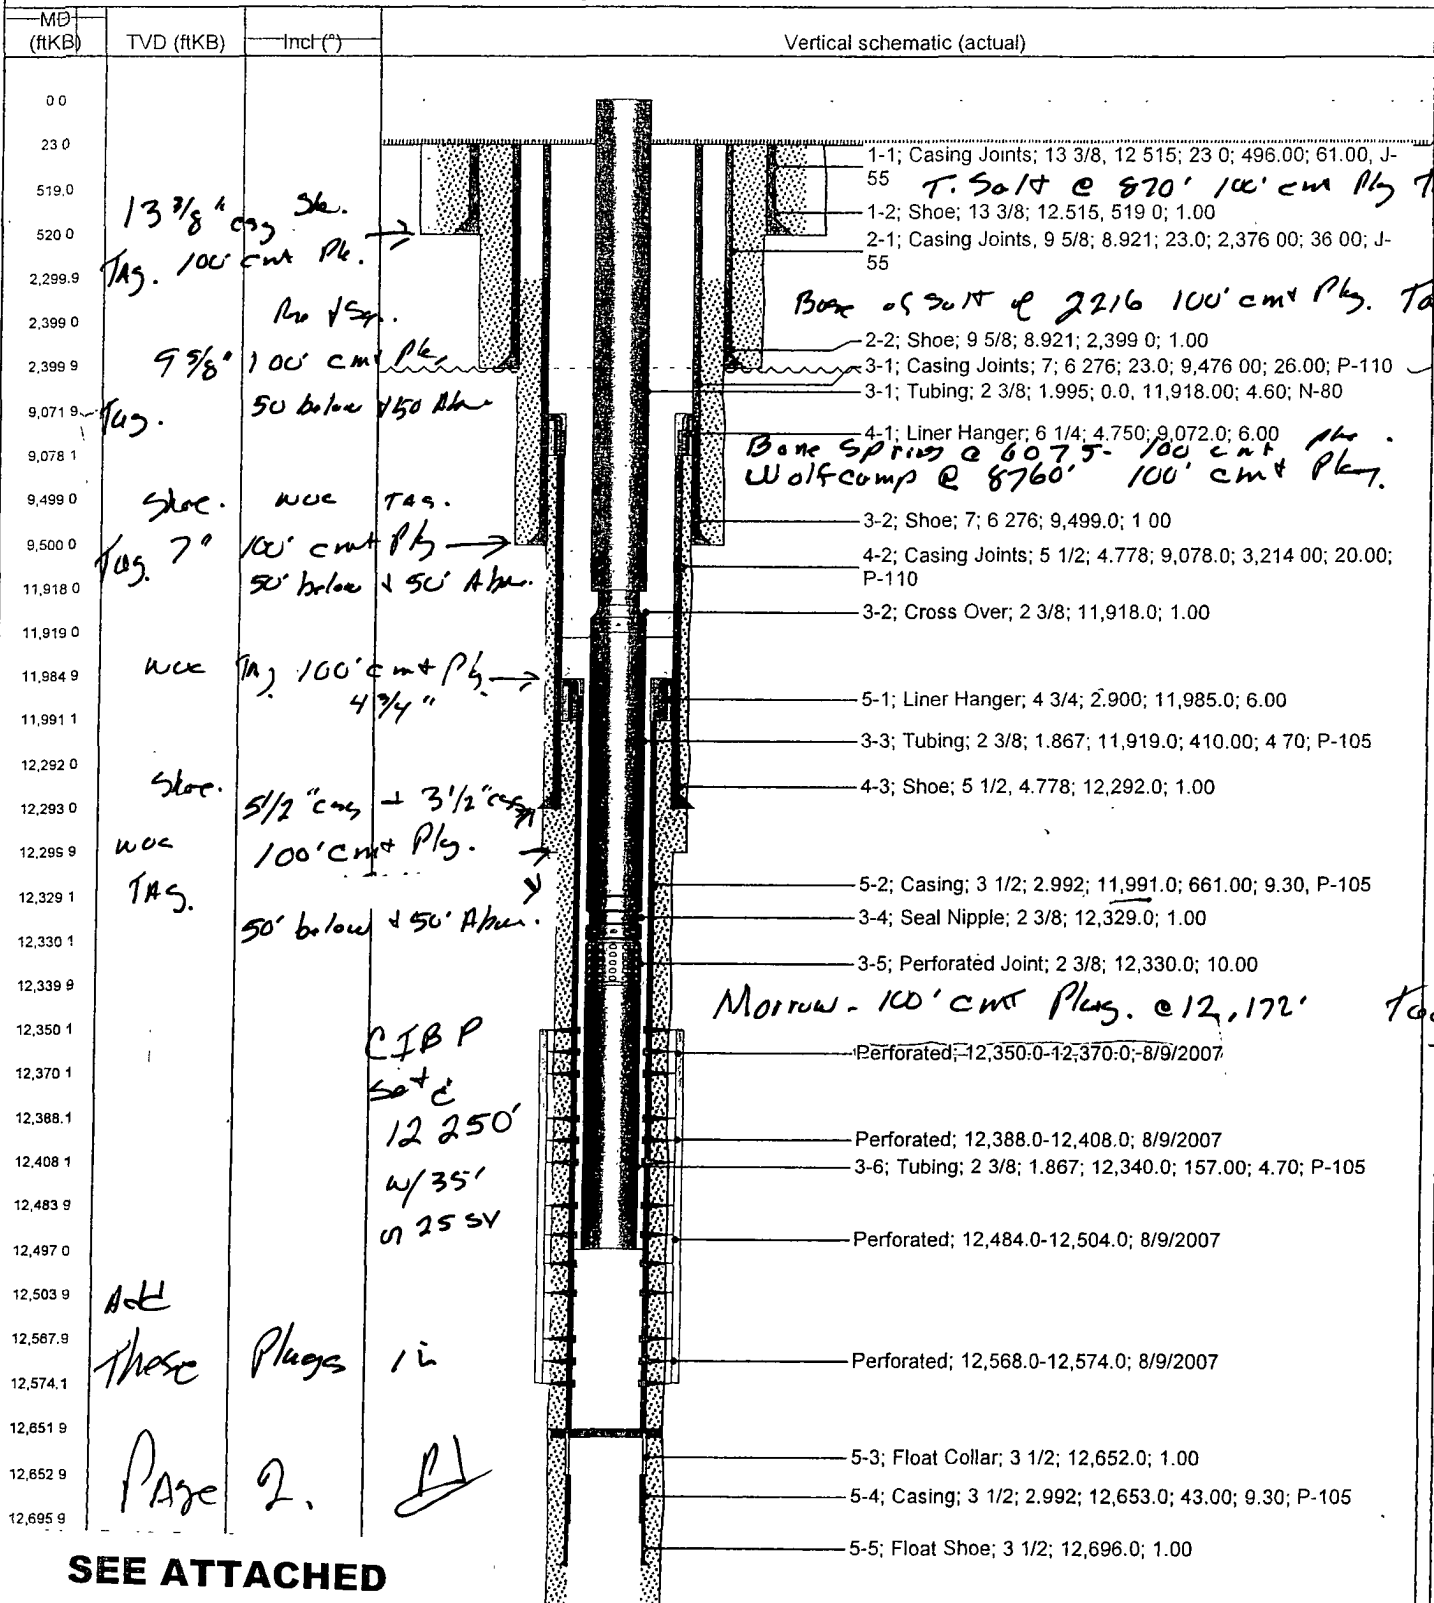 MD
(ftKB)
TVD (ftKB)
Incl (°)
Vertical schematic (actual)
0 0
23 0
519.0
520 0
2,299.9
2,399 0
2,399 9
9,071 9
9,078 1
9,499 0
9,500 0
11,918 0
11,919 0
11,984 9
11,991 1
12,292 0
12,293 0
12,295 9
12,329 1
12,330 1
12,339 9
12,350 1
12,370 1
12,388.1
12,408 1
12,483 9
12,497 0
12,503 9
12,567.9
12,574.1
12,651 9
12,652 9
12,695 9
13 3/8" csg
TAg. 100' cmt
9 5/8" 100' cmt
Tag. 50 below + 50
Shoe. WOC TAG.
Tag. 7" 100' cmt Plg
50' below + 50'
WOC TAg 100' cmt Plg.
4 3/4"
Shoe.
5 1/2" csg + 3 1/2" csg
WOC 100' cmt Plg.
TAG.
50' below + 50'
CIBP
Set @
12 250'
w/ 35'
25 sx
Add
These Plugs in
PAge 2.
SEE ATTACHED
1-1; Casing Joints; 13 3/8, 12 515; 23 0; 496.00; 61.00, J-
55
T. Salt @ 870' 100' cm Plg
1-2; Shoe; 13 3/8; 12.515, 519 0; 1.00
2-1; Casing Joints, 9 5/8; 8.921; 23.0; 2,376 00; 36 00; J-
55
Base of Salt @ 2216 100' cmt Plg.
2-2; Shoe; 9 5/8; 8.921; 2,399 0; 1.00
3-1; Casing Joints; 7; 6 276; 23.0; 9,476 00; 26.00; P-110
3-1; Tubing; 2 3/8; 1.995; 0.0, 11,918.00; 4.60; N-80
4-1; Liner Hanger; 6 1/4; 4.750; 9,072.0; 6.00
Bone Spring @ 6075- 100' cmt
Wolfcamp @ 8760' 100' cmt Plg.
3-2; Shoe; 7; 6 276; 9,499.0; 1 00
4-2; Casing Joints; 5 1/2; 4.778; 9,078.0; 3,214 00; 20.00;
P-110
3-2; Cross Over; 2 3/8; 11,918.0; 1.00
5-1; Liner Hanger; 4 3/4; 2.900; 11,985.0; 6.00
3-3; Tubing; 2 3/8; 1.867; 11,919.0; 410.00; 4 70; P-105
4-3; Shoe; 5 1/2, 4.778; 12,292.0; 1.00
5-2; Casing; 3 1/2; 2.992; 11,991.0; 661.00; 9.30, P-105
3-4; Seal Nipple; 2 3/8; 12,329.0; 1.00
3-5; Perforated Joint; 2 3/8; 12,330.0; 10.00
Morrow - 100' cmt Plug. @ 12,172'
Perforated; 12,350.0-12,370.0; 8/9/2007
Perforated; 12,388.0-12,408.0; 8/9/2007
3-6; Tubing; 2 3/8; 1.867; 12,340.0; 157.00; 4.70; P-105
Perforated; 12,484.0-12,504.0; 8/9/2007
Perforated; 12,568.0-12,574.0; 8/9/2007
5-3; Float Collar; 3 1/2; 12,652.0; 1.00
5-4; Casing; 3 1/2; 2.992; 12,653.0; 43.00; 9.30; P-105
5-5; Float Shoe; 3 1/2; 12,696.0; 1.00